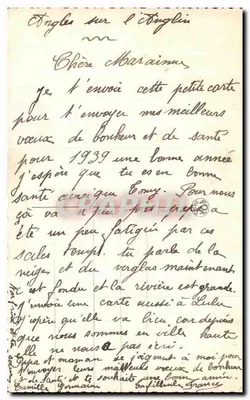 Angles sur l'Anglin
Chère Marainne
Je t'envoie cette petite carte
pour t'envoyer mes meilleurs
vœux de bonheur et de santé
pour 1939 une bonne année
j'espère que tu es en bonne
santé ainsi que Tony. Pour nous
ça va à peu près papa a
été un peu fatigué par ces
sales temps. tu parle de la
neige et du verglas maintenant
c'est fondu et la rivière est grande.
J'envoie une carte aussi à Lulu
j'espère qu'elle va bien car depuis
que nous sommes en ville haute
elle ne nous a pas écri.
maman se joignent à moi pour
t'envoyer leurs meilleurs vœux de bonheur
et de santé et te souhaite une bonne année.
Camille Germaine